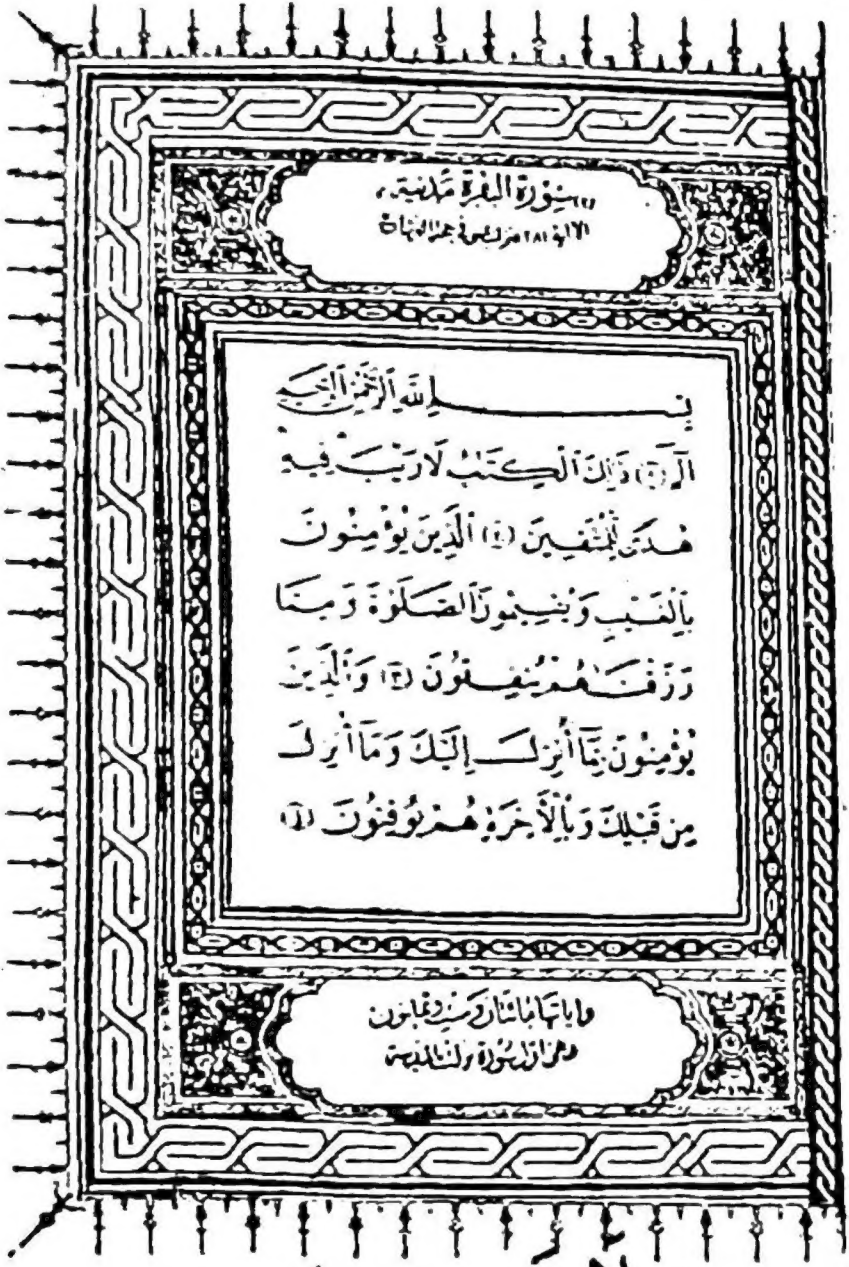 (٢) سُورَة البَقَرَةِ مَدَنِيَّة
الا اية ٢٨١ فنزلت بمنى فى حجة الوداع
بِسْمِ اللَّهِ الرَّحْمَٰنِ الرَّحِيمِ
الٓمٓ (١) ذَٰلِكَ ٱلْكِتَٰبُ لَا رَيْبَ فِيهِ
هُدًى لِّلْمُتَّقِينَ (٢) ٱلَّذِينَ يُؤْمِنُونَ
بِٱلْغَيْبِ وَيُقِيمُونَ ٱلصَّلَوٰةَ وَمِمَّا
رَزَقْنَٰهُمْ يُنفِقُونَ (٣) وَٱلَّذِينَ
يُؤْمِنُونَ بِمَآ أُنزِلَ إِلَيْكَ وَمَآ أُنزِلَ
مِن قَبْلِكَ وَبِٱلْأَخِرَةِ هُمْ يُوقِنُونَ (٤)
واياتها مائتان وست وثمانون
وهى اول سورة نزلت بالمدينة